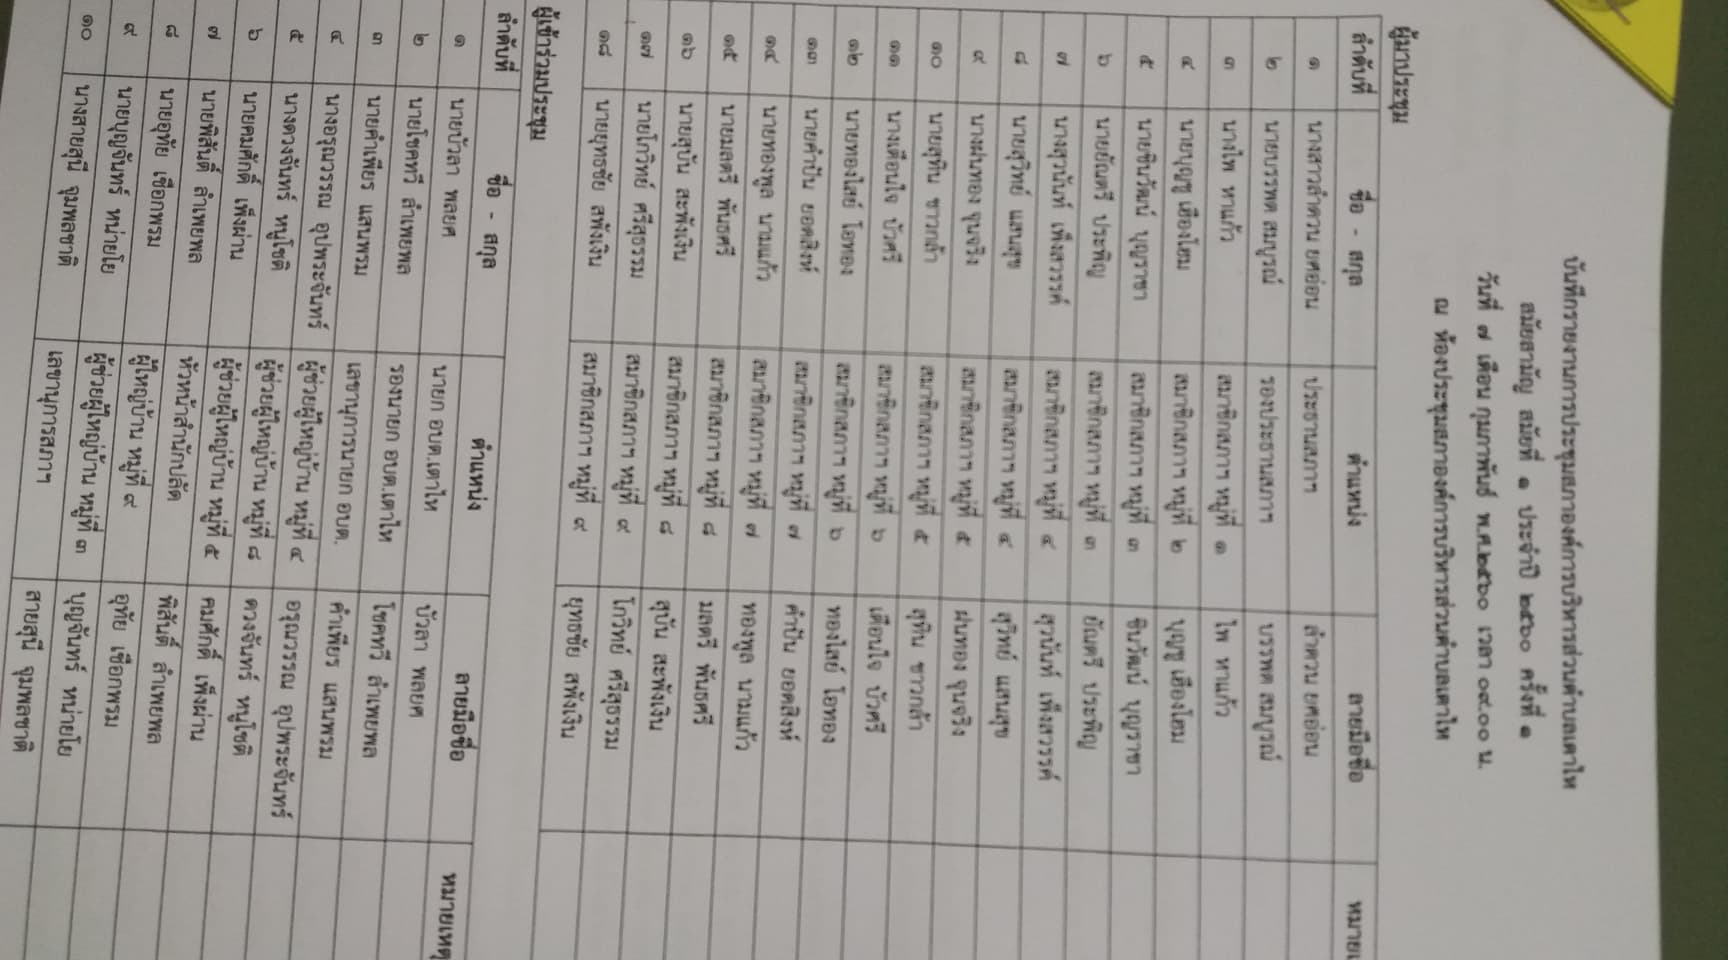 บันทึกรายงานการประชุมสภาองค์การบริหารส่วนตำบลเตาไห
สมัยสามัญ สมัยที่ ๑ ประจำปี ๒๕๖๐ ครั้งที่ ๑
วันที่ ๗ เดือน กุมภาพันธ์ พ.ศ.๒๕๖๐ เวลา ๐๙.๐๐ น.
ณ ห้องประชุมสภาองค์การบริหารส่วนตำบลเตาไห
ผู้มาประชุม
ลำดับที่ ชื่อ - สกุล ตำแหน่ง ลายมือชื่อ หมายเ
๑ นางสาวลำดวน ยศอ่อน ประธานสภาฯ ลำดวน ยศอ่อน
๒ นายบรรพต สมบูรณ์ รองประธานสภาฯ บรรพต สมบูรณ์
๓ นางไพ หาแก้ว สมาชิกสภาฯ หมู่ที่ ๑ ไพ หาแก้ว
๔ นายบุญชู เฮืองโฮม สมาชิกสภาฯ หมู่ที่ ๒ บุญชู เฮืองโฮม
๕ นายชินวัฒน์ บุญราชา สมาชิกสภาฯ หมู่ที่ ๓ ชินวัฒน์ บุญราชา
๖ นายอัญตรี ประพิญ สมาชิกสภาฯ หมู่ที่ ๓ อัญตรี ประพิญ
๗ นางสุวนันท์ เพ็งสวรรค์ สมาชิกสภาฯ หมู่ที่ ๔ สุวนันท์ เพ็งสวรรค์
๘ นายสุวิทย์ แสนสุข สมาชิกสภาฯ หมู่ที่ ๔ สุวิทย์ แสนสุข
๙ นางฝนทอง จุนจริง สมาชิกสภาฯ หมู่ที่ ๕ ฝนทอง จุนจริง
๑๐ นายสุทิน ชาวกล้า สมาชิกสภาฯ หมู่ที่ ๕ สุทิน ชาวกล้า
๑๑ นางเตือนใจ บัวศรี สมาชิกสภาฯ หมู่ที่ ๖ เตือนใจ บัวศรี
๑๒ นายทองใสย์ โอทอง สมาชิกสภาฯ หมู่ที่ ๖ ทองใสย์ โอทอง
๑๓ นายคำปัน ยอดสิงห์ สมาชิกสภาฯ หมู่ที่ ๗ คำปัน ยอดสิงห์
๑๔ นายทองพูล นามแก้ว สมาชิกสภาฯ หมู่ที่ ๗ ทองพูล นามแก้ว
๑๕ นายมลตรี พันธศรี สมาชิกสภาฯ หมู่ที่ ๘ มลตรี พันธศรี
๑๖ นายสุบัน สะพังเงิน สมาชิกสภาฯ หมู่ที่ ๘ สุบัน สะพังเงิน
๑๗ นายโกวิทย์ ศรีสุธรรม สมาชิกสภาฯ หมู่ที่ ๙ โกวิทย์ ศรีสุธรรม
๑๘ นายยุทธชัย สพังเงิน สมาชิกสภาฯ หมู่ที่ ๙ ยุทธชัย สพังเงิน
ผู้เข้าร่วมประชุม
ลำดับที่ ชื่อ - สกุล ตำแหน่ง ลายมือชื่อ หมายเหตุ
๑ นายบัวลา พลยศ นายก อบต.เตาไห บัวลา พลยศ
๒ นายโชคทวี ลำเพยพล รองนายก อบต.เตาไห โชคทวี ลำเพยพล
๓ นายคำเพียร แสนพรม เลขานุการนายก อบต. คำเพียร แสนพรม
๔ นางอรุณวรรณ อุปพระจันทร์ ผู้ช่วยผู้ใหญ่บ้าน หมู่ที่ ๔ อรุณวรรณ อุปพระจันทร์
๕ นางดวงจันทร์ หนูโชติ ผู้ช่วยผู้ใหญ่บ้าน หมู่ที่ ๘ ดวงจันทร์ หนูโชติ
๖ นายคมศักดิ์ เพ็งผ่าน ผู้ช่วยผู้ใหญ่บ้าน หมู่ที่ ๕ คมศักดิ์ เพ็งผ่าน
๗ นายพิสันติ์ ลำเพยพล หัวหน้าสำนักปลัด พิสันติ์ ลำเพยพล
๘ นายอุทัย เชือกพรม ผู้ใหญ่บ้าน หมู่ที่ ๙ อุทัย เชือกพรม
๙ นายบุญจันทร์ หน่ายโย ผู้ช่วยผู้ใหญ่บ้าน หมู่ที่ ๓ บุญจันทร์ หน่ายโย
๑๐ นางสายสุนี จุมพลชาติ เลขานุการสภาฯ สายสุนี จุมพลชาติ